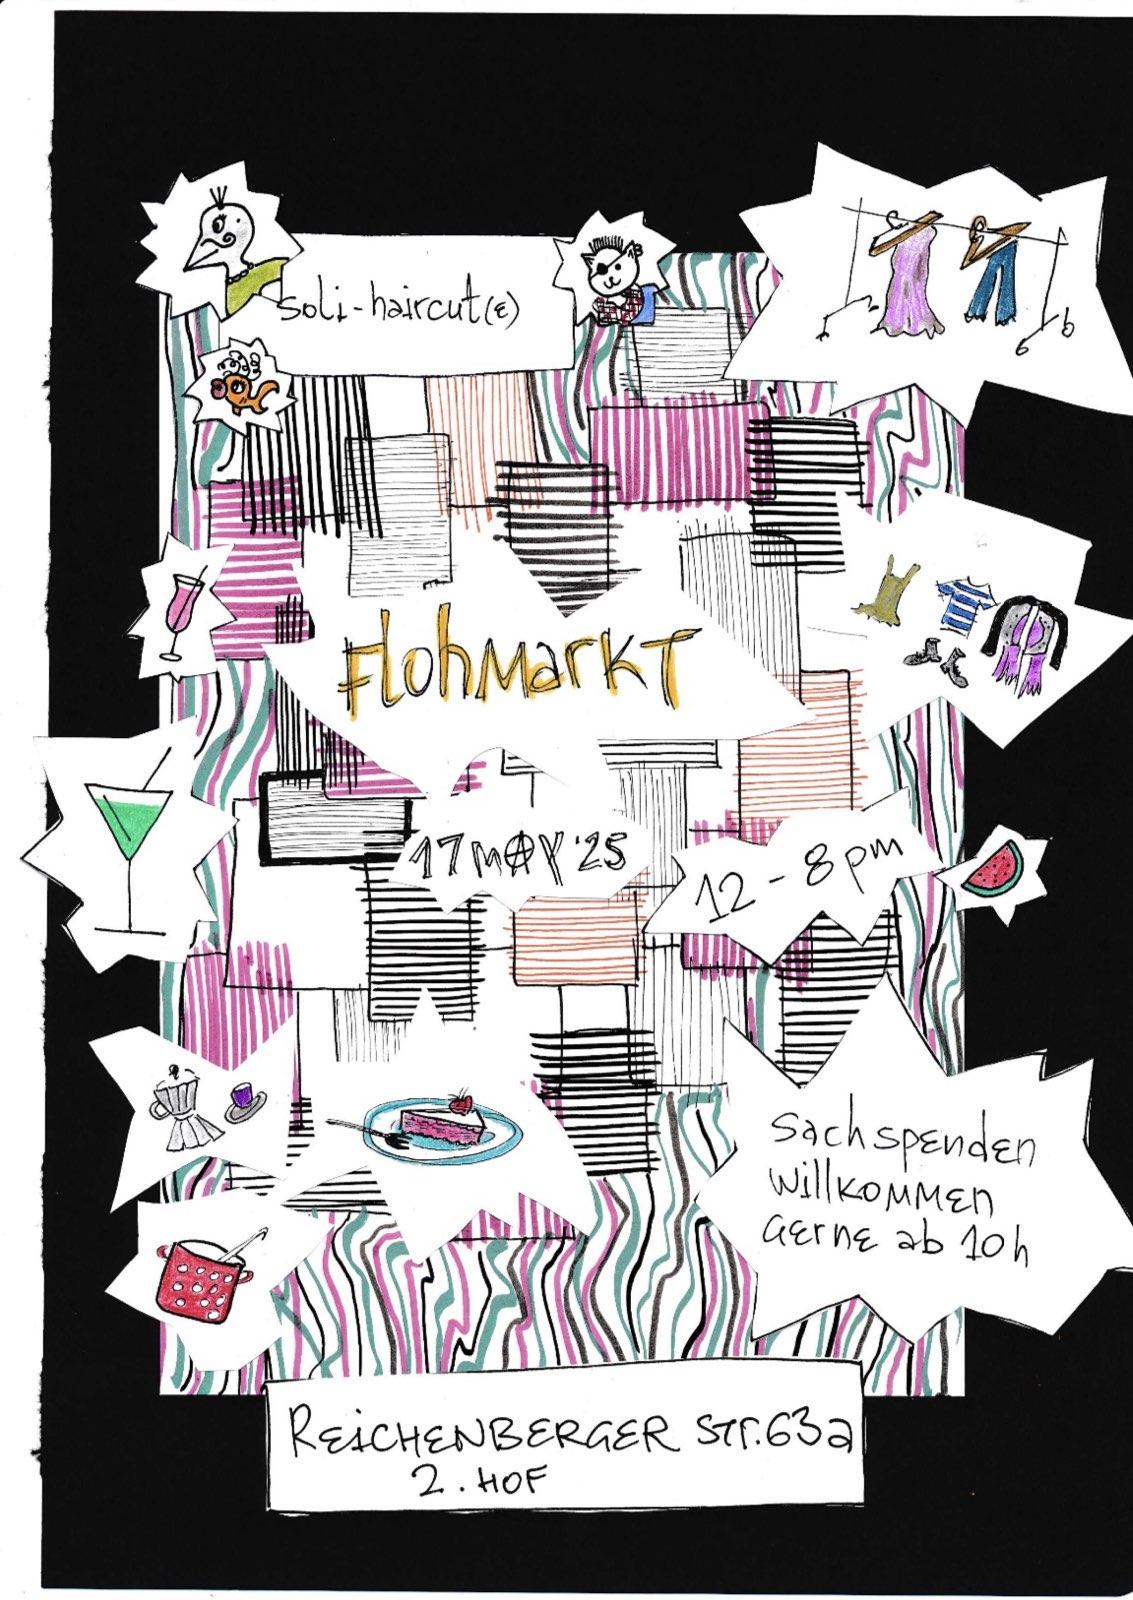 soli-haircut(e)
Flohmarkt
17 May '25
12 - 8 pm
Sachspenden
Willkommen
Gerne ab 10h
Reichenberger Str. 63a
2. Hof